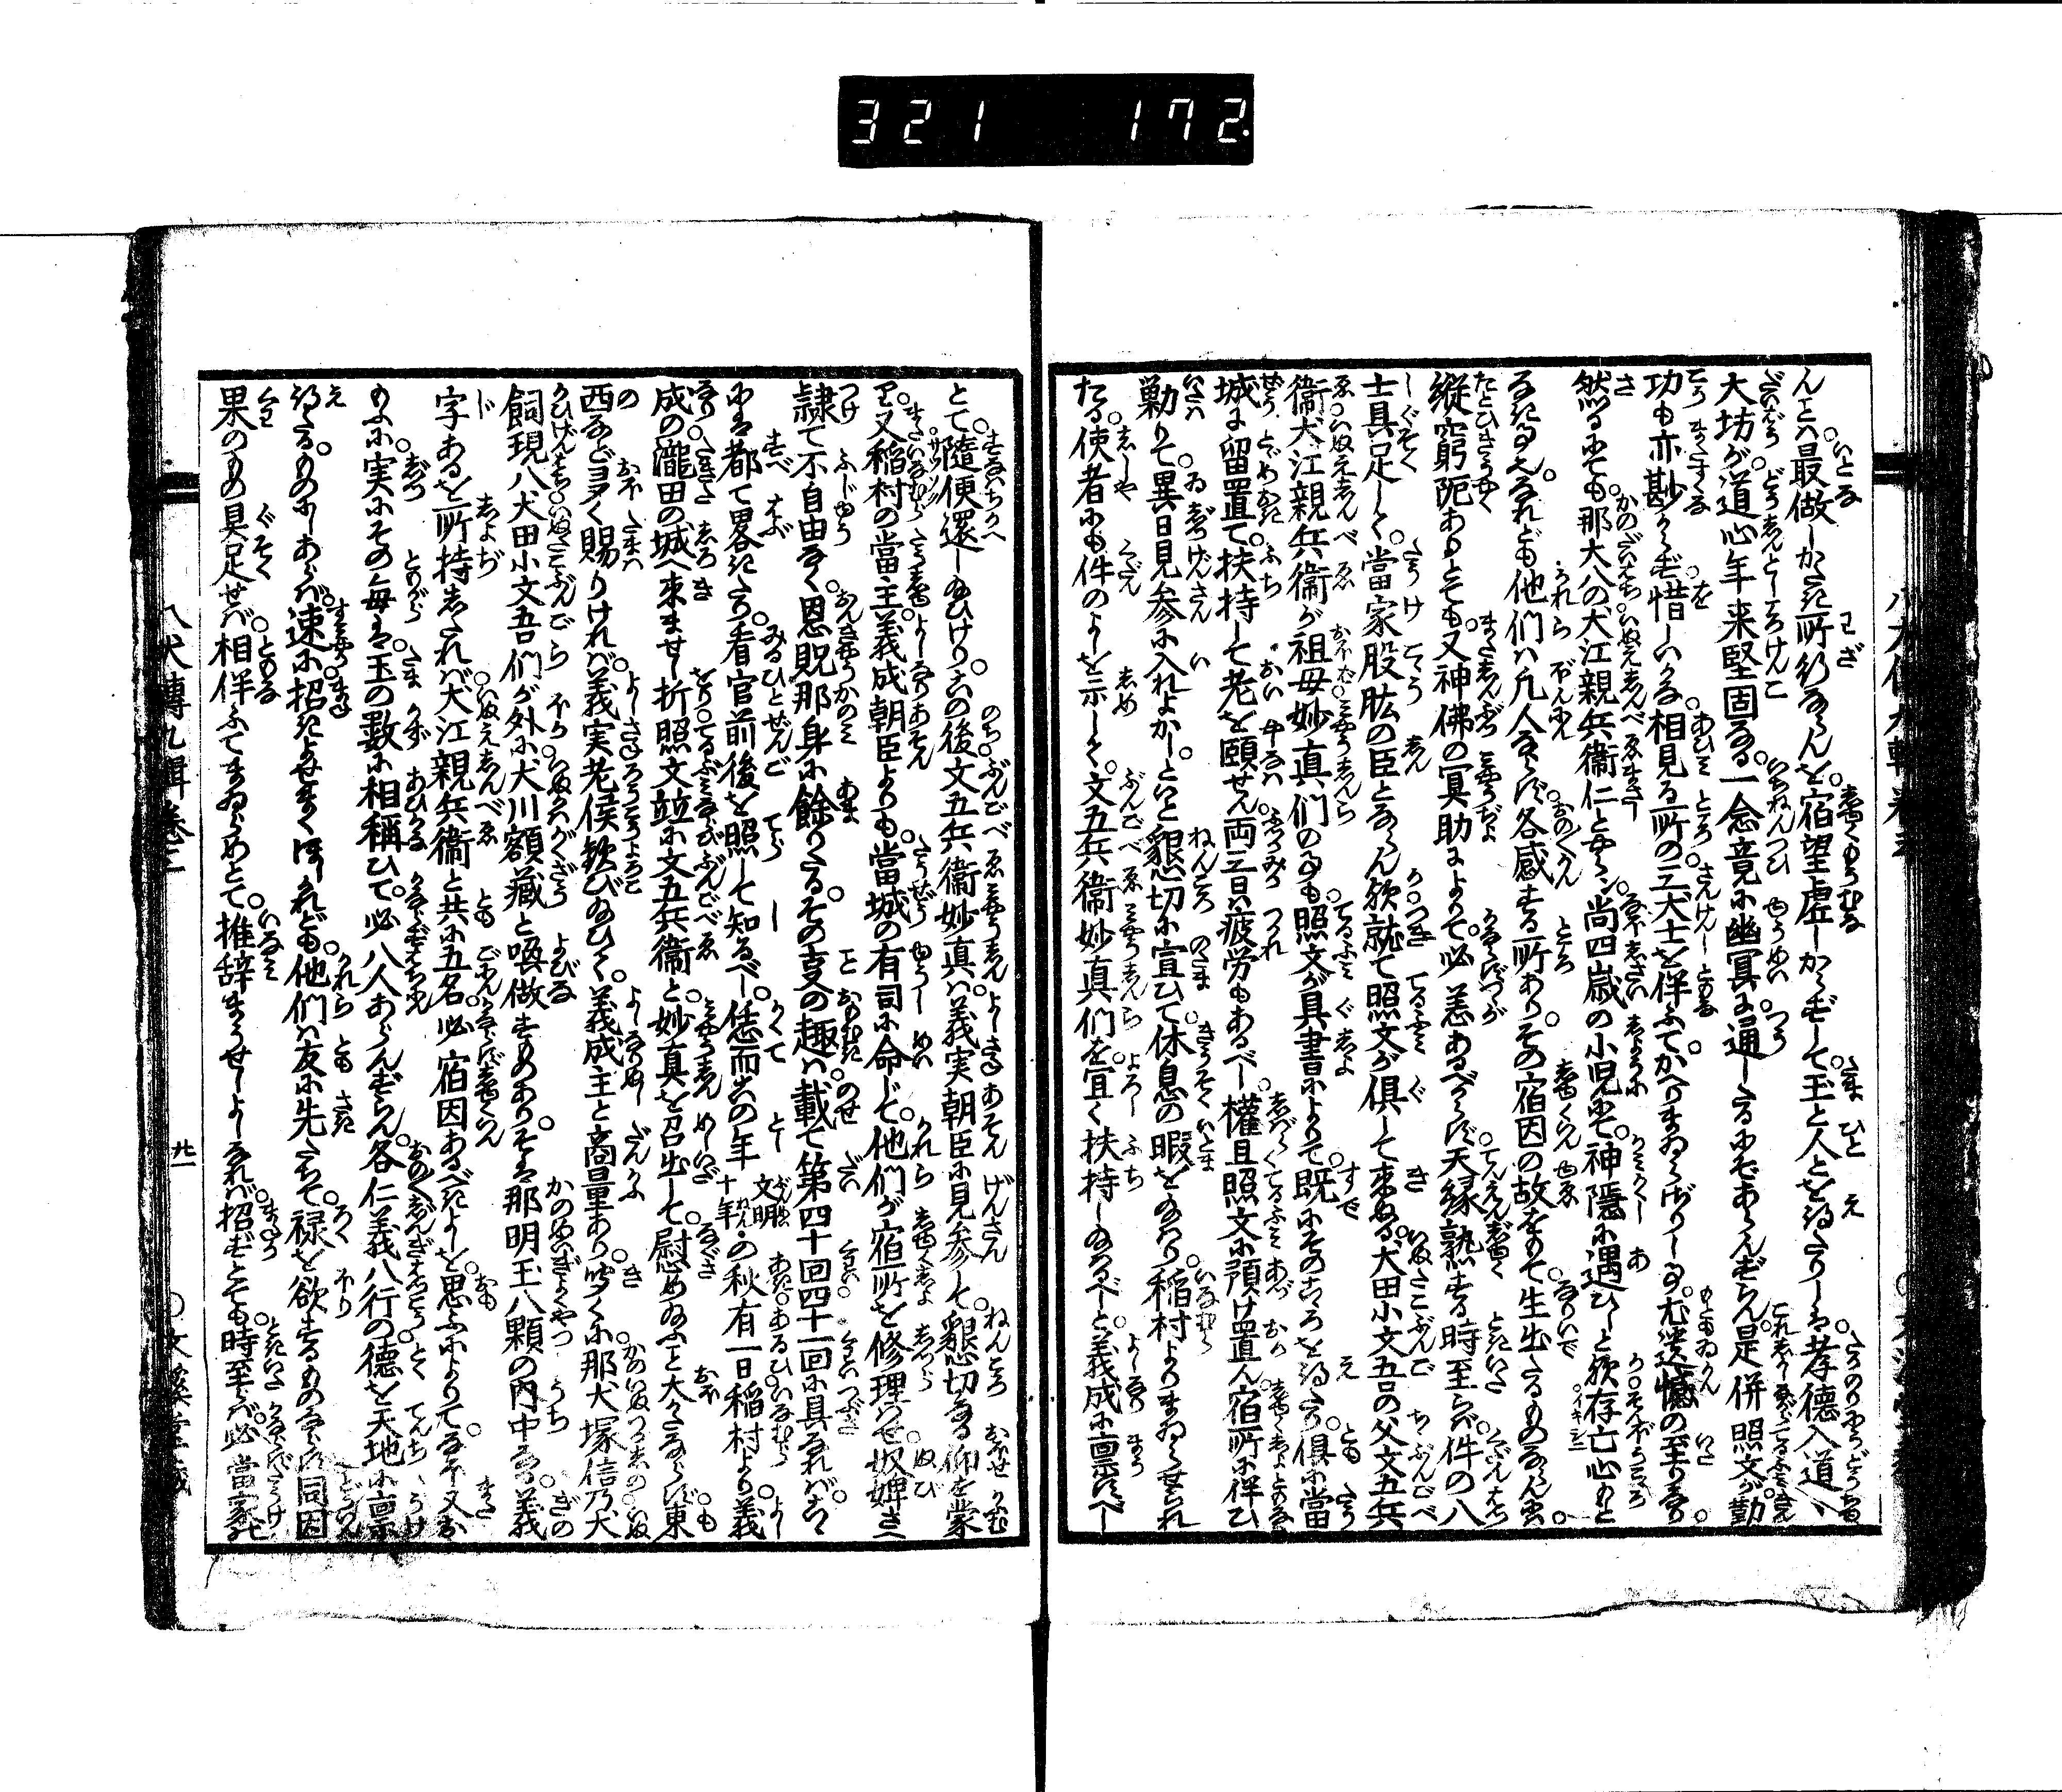 321 172.
んとは最做しかたき所行ならんを。宿望虚しからずして玉と人とを得たりしは孝徳入道、
大坊が道心年来堅固なる。一念竟に幽冥に通したるにぞあらんずらん。是併照文が勤
功も亦尠からず惜しいかな相見る所の三犬士を伴ふてかへりまゐらざりし事。尤遺憾の至りなり
然るにても。那大八の犬江親兵衞仁とやらん尚四歳の小児にて。神隠に遇ひしと欤存亡心もと
なき事なれども他們は凡人ならず各感ずる所あり。その宿因の故をもて生出たるものならんには。
縦窮阨ありとても。又神佛の冥助によりて。必恙あるべからず天縁熟する時至らば件の八
士具足して。當家股肱の臣とならん欤就て照文が倶して来ぬる。犬田小文吾の父文五兵
衞犬江親兵衞が祖母妙真們の事も照文が具書によりて既にそのこゝろを得たり。倶に當
城に留置て扶持して老を頤せん両三日は疲労もあるべし。權且照文に預け置ん。宿所に伴ひ
勦りて。異日見参に入れよかし。といと懇切に宣ひて。休息の暇を給はり。稲村よりまゐらせられ
たる。使者にも件のよしを示して。文五兵衞妙真們を宜く扶持し給ふべしと。義成に稟すべし
とて。隨便還し給ひけり。この後文五兵衞妙真は。義実朝臣に見参して。懇切なる仰を蒙
り。又稲村の當主。義成朝臣よりも。當城の有司に命じて。他們が宿所を修理はせ。奴婢さへ
隷て不自由なく。恩貺那身に餘りたる。その支の趣は載て第四十回四十一回に具なれば。こゝ
には都て畧きたり。看官前後を照して知るべし。恁而この年文明十年。の秋有一日稲村より義
成の瀧田の城へ来ませし折照文竝に文五兵衞と妙真を召出して。慰め給ふこと大かたならず。東
西などヨタく賜りければ。義実老侯歓び給ひて。義成主と商量あり。疾くに那犬塚信乃犬
飼現八犬田小文吾們が外に犬川額藏と喚做すものあり。そは那明玉八顆の内中なる。義
字あるを所持したれば。犬江親兵衞と共に五名。必宿因あるべきよしを。思ふによりて。なほ又お
もふに。実にその毎は。玉の數に相稱ひて。必八人あらんずらん。各仁義八行の徳を天地に稟
得たる。ものにしあらば。速に招きよせまくほりすれども。他們は友に先たちて禄を欲するものならず。同因
果のもの具足せば。相伴ふてまゐらめとて。推辞まうせしよしなれば。招ずとても。時至らば。必當家に
八犬傳九輯巻二 廿一 文溪堂藏